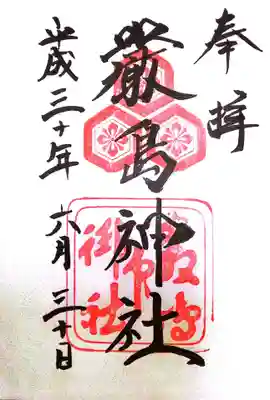 奉拝
厳島神社
平成三十年
六月三十日